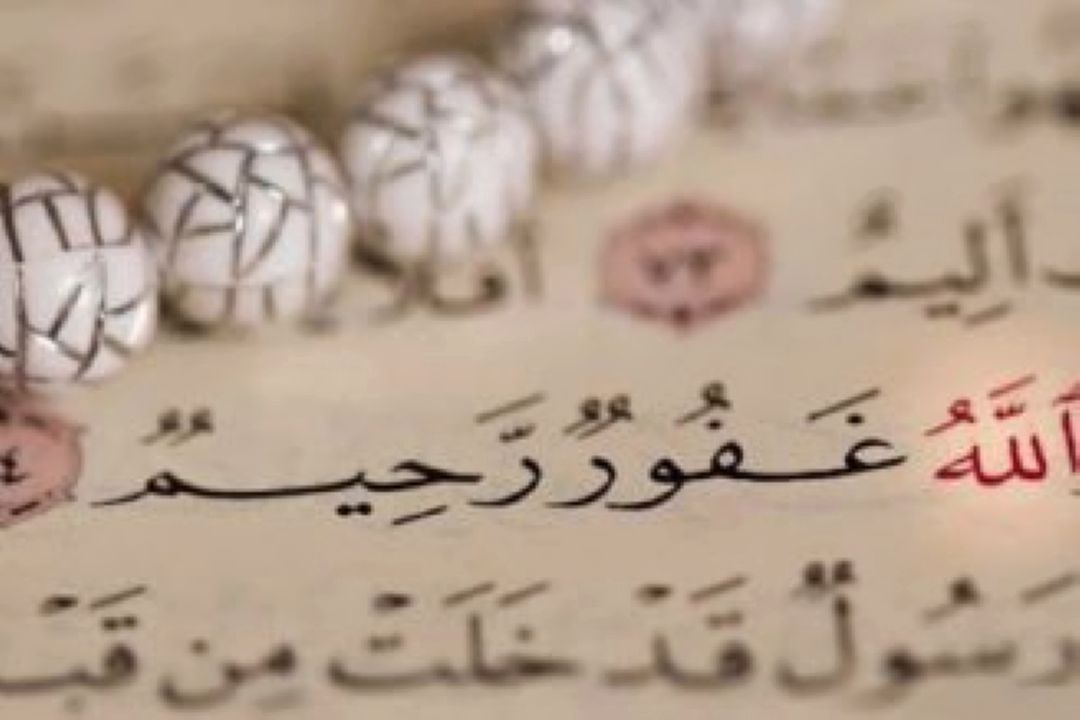 أَلِيمٌ ٧٣ أَفَلَا
ٱللَّهُ غَفُورٌ رَّحِيمٌ
رَسُولٌ قَدْ خَلَتْ مِن قَبْ